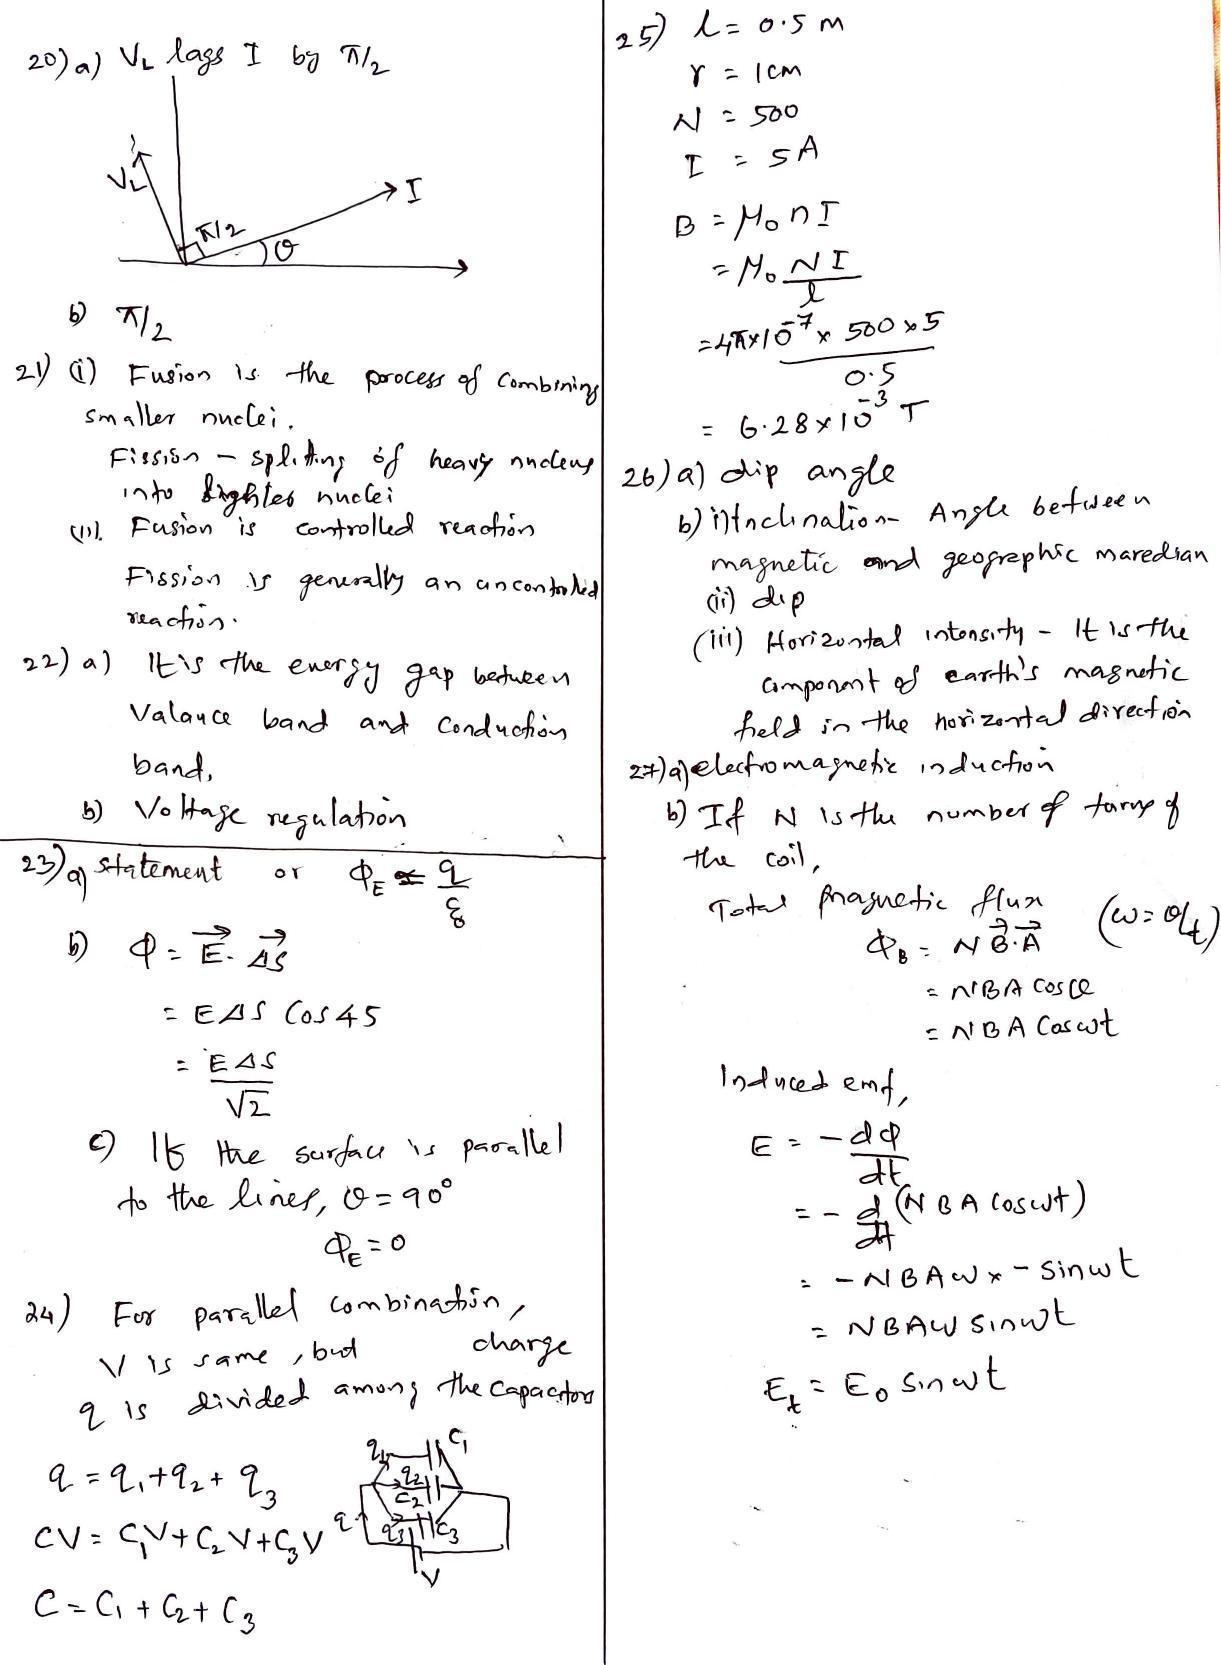 20) a) V_L lags I by π/2
V_L
I
π/2
θ
b) π/2
21) (i) Fusion is the process of combining
smaller nuclei.
Fission - spliting of heavy nucleus
into lighter nuclei
(ii). Fusion is controlled reaction
Fission is generally an uncontrolled
reaction.
22) a) It is the energy gap between
Valance band and conduction
band,
b) Voltage regulation
23) a) statement or Φ_E = q/ε₀
b) Φ = E⃗. ΔS⃗
= EΔS Cos 45
= EΔS/√2
c) If the surface is parallel
to the lines, θ = 90°
Φ_E = 0
24) For parallel combination,
V is same, but charge
q is divided among the capacitors
q = q₁ + q₂ + q₃
CV = C₁V + C₂V + C₃V
C = C₁ + C₂ + C₃
q₁ C₁
q₂
C₂
q q₃ C₃
V
25) l = 0.5 m
r = 1cm
N = 500
I = 5A
B = μ₀ n I
= μ₀ N I / l
= 4π×10⁻⁷ × 500 × 5
0.5
= 6.28 × 10⁻³ T
26) a) dip angle
b) i) Inclination - Angle between
magnetic and geographic maredian
(ii) dip
(iii) Horizontal intensity - It is the
component of earth's magnetic
field in the horizontal direction
27) a) electromagnetic induction
b) If N is the number of turns of
the coil,
Total magnetic flux (ω = θ/t)
Φ_B = N B⃗.A⃗
= NBA cos θ
= NBA Cos ωt
Induced emf,
E = -dΦ/dt
= - d/dt (NBA cos ωt)
= - NBAω × - sin ωt
= NBAω sin ωt
E_t = E₀ sin ωt